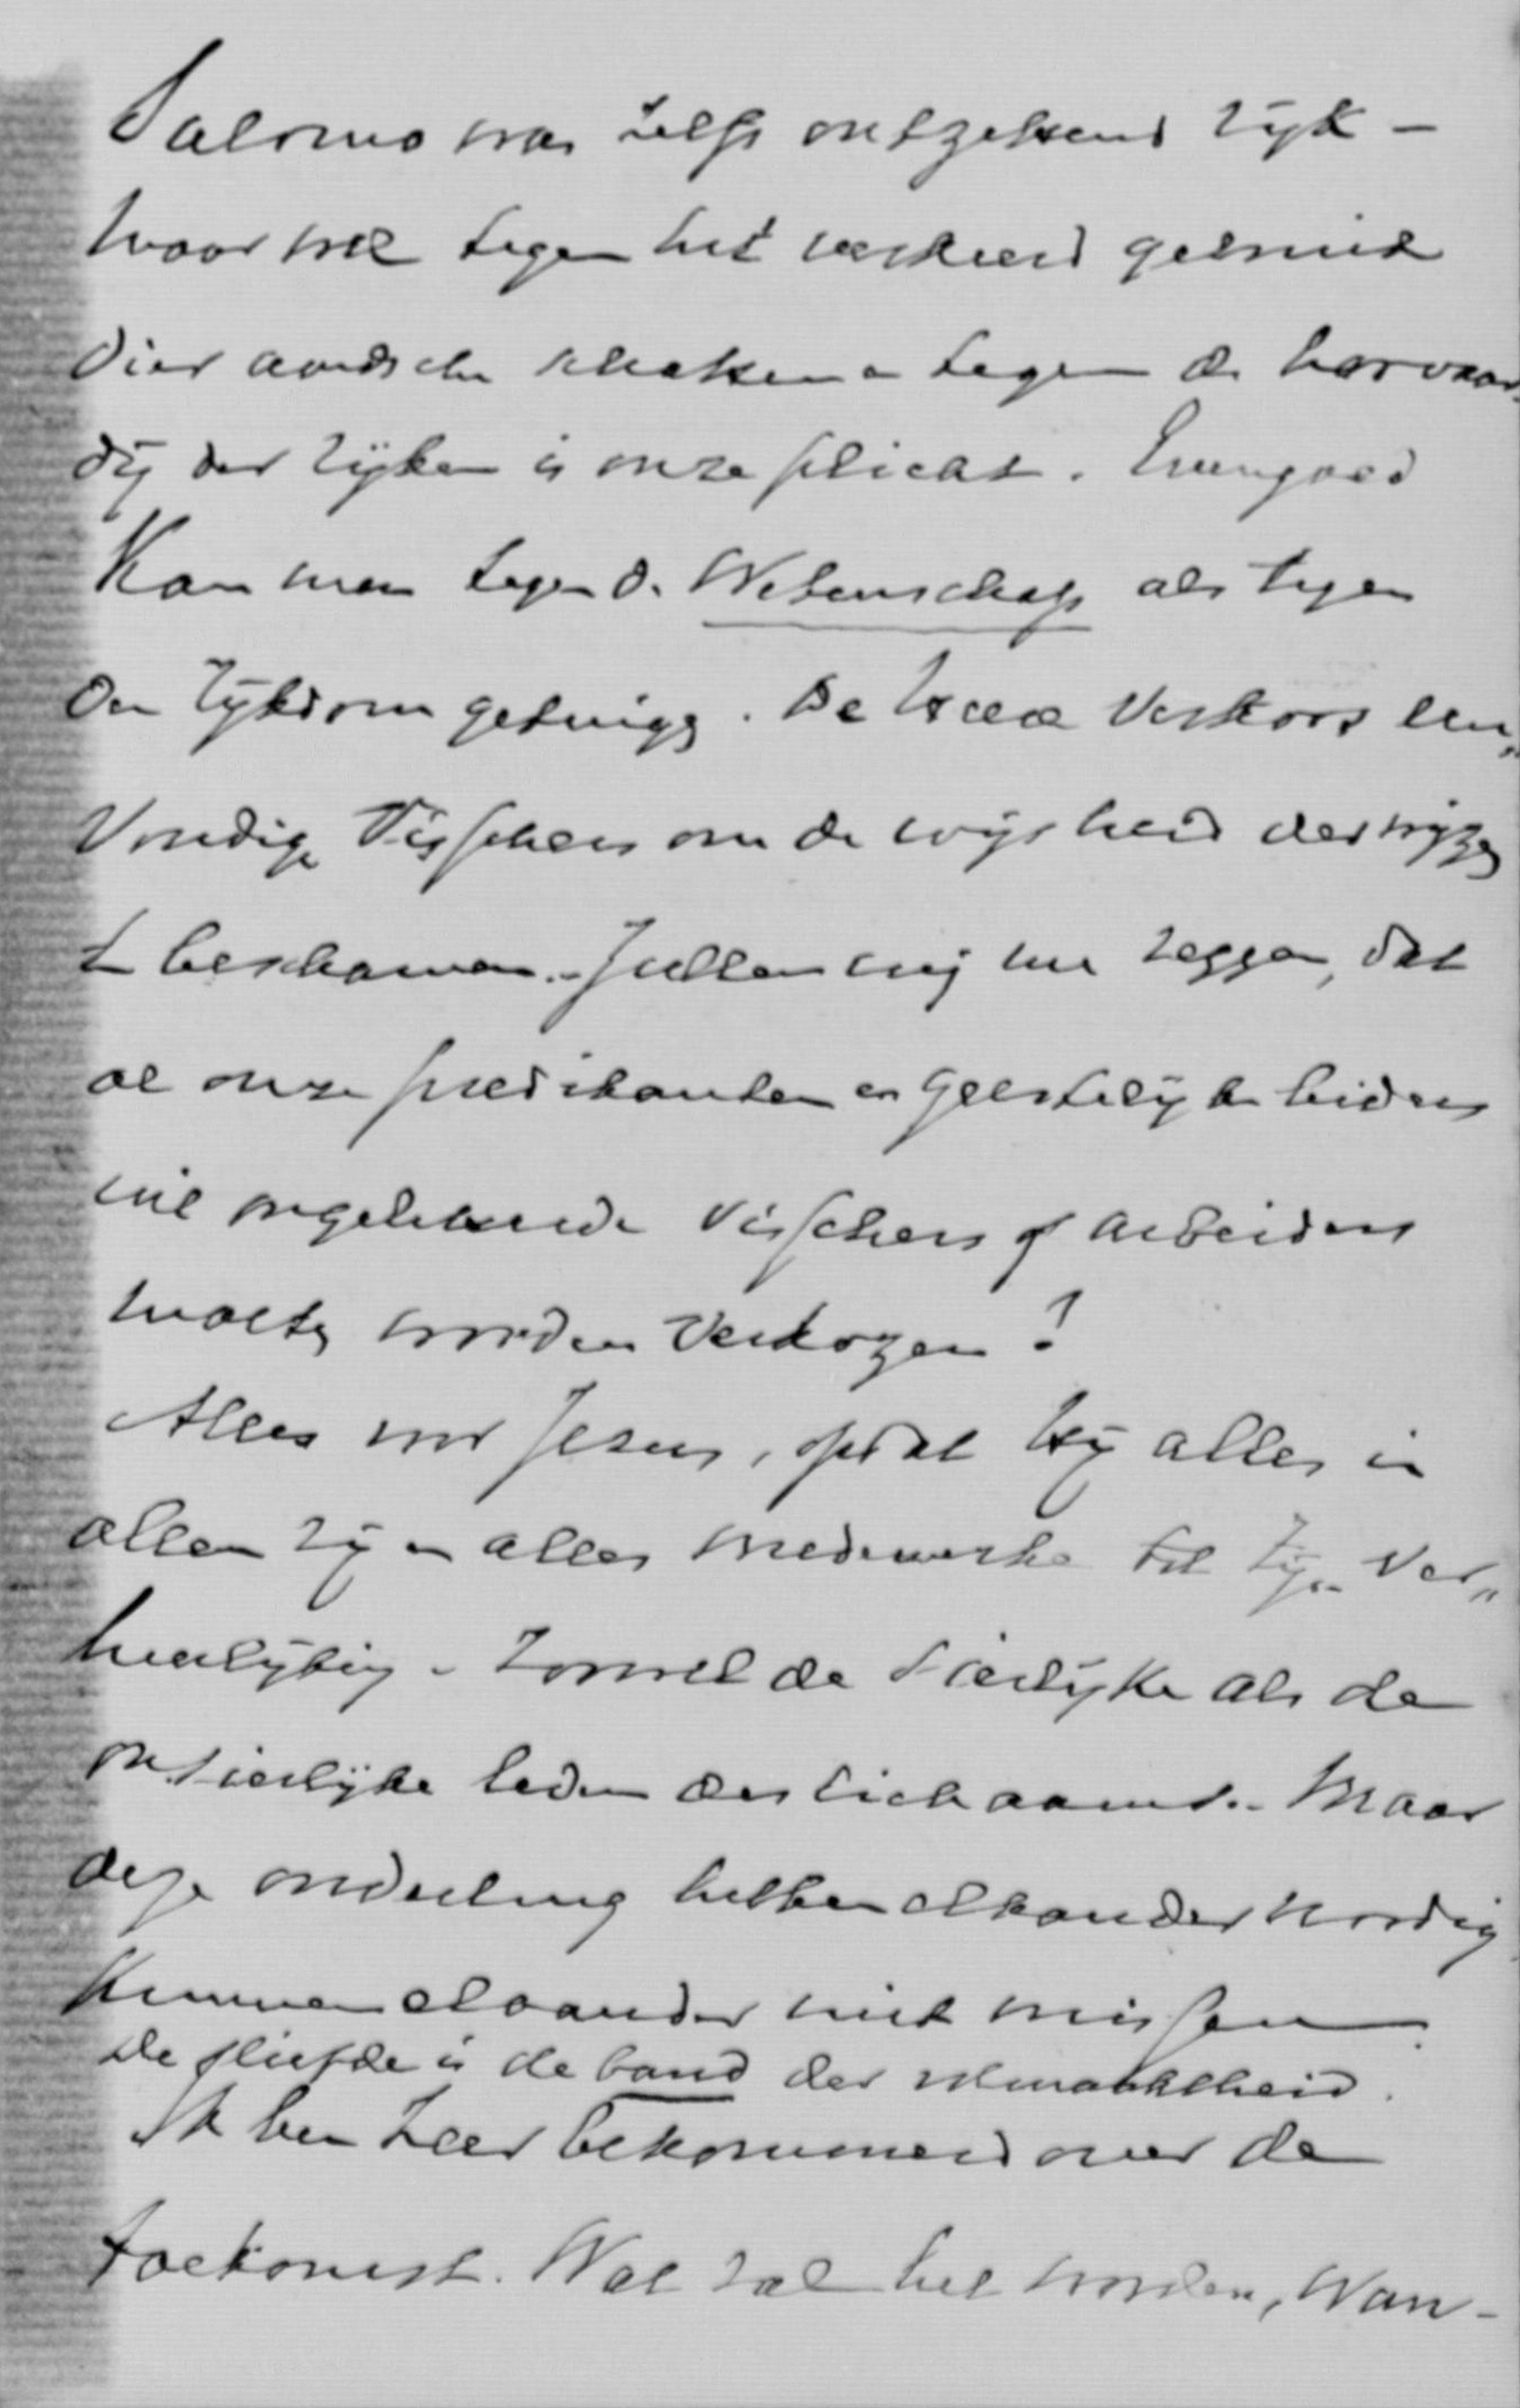 Salomo was zelfs ontzettend rijk —
Maar wel tegen het verkeerd gebruik
dier aardsche schatten en tegen de hoovaar„
dij der rijken is onze plicht. Evengoed
kan men tegen de Wetenschap als tegen
den rijkdom getuigen. De Heere verkoos een„
voudige Visschers om de wijsheid der wijzen
te beschamen. Zullen wij nu zeggen, dat
al onze predikanten en geestelijke leiders
uit ongeletterde visschers of arbeiders
moeten worden verkozen?
Alles voor Jezus, opdat Hij alles in
allen zij en alles medewerke tot Zijn Ver„
heerlijking. Zoowel de sierlijke als de
onsierlijke leden des lichaams. Maar
deze onderling hebben elkander noodig
kunnen elkander niet missen.
De liefde is de band der volmaaktheid.
Ik ben zeer bekommerd over de
toekomst. Wat zal het worden, Wan-